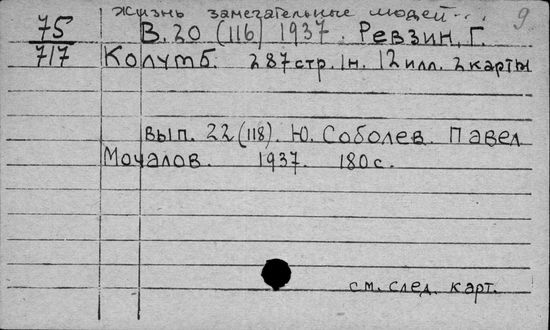 Жизнь замечательных людей... 9
75
717
В. 20 (116) 1937. Ревзин, Г.
Колумб. 287 стр. 1н. 12 илл. 2 карты
вып. 22 (118). Ю. Соболев. Павел
Мочалов. 1937. 180 с.
см. след. карт.